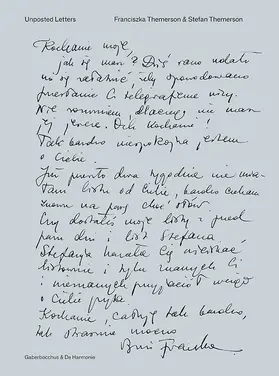 Unposted Letters
Franciszka Themerson & Stefan Themerson
Kochanie moje,
jak się masz? Dziś rano udało
mi się załatwić, żeby spowodowano
przesłanie Ci telegraficznie wizy.
Nie rozumiem, dlaczego nie masz
jej jeszcze. Och kochanie!
Tak bardzo niespokojna jestem
o Ciebie.
Już ponad dwa tygodnie nie mia-
łam listu od Ciebie, bardzo czekam
znowu na parę choć słów.
Czy dostałeś moje listy z przed
paru dni i list Stefana
Stefania kazała Cię uściskać,
i tylu znanych Ci
i nieznanych przyjaciół wciąż
o Ciebie pyta.
Kochanie, całuję tak bardzo,
tak strasznie mocno
Franka
Gaberbocchus & De Harmonie